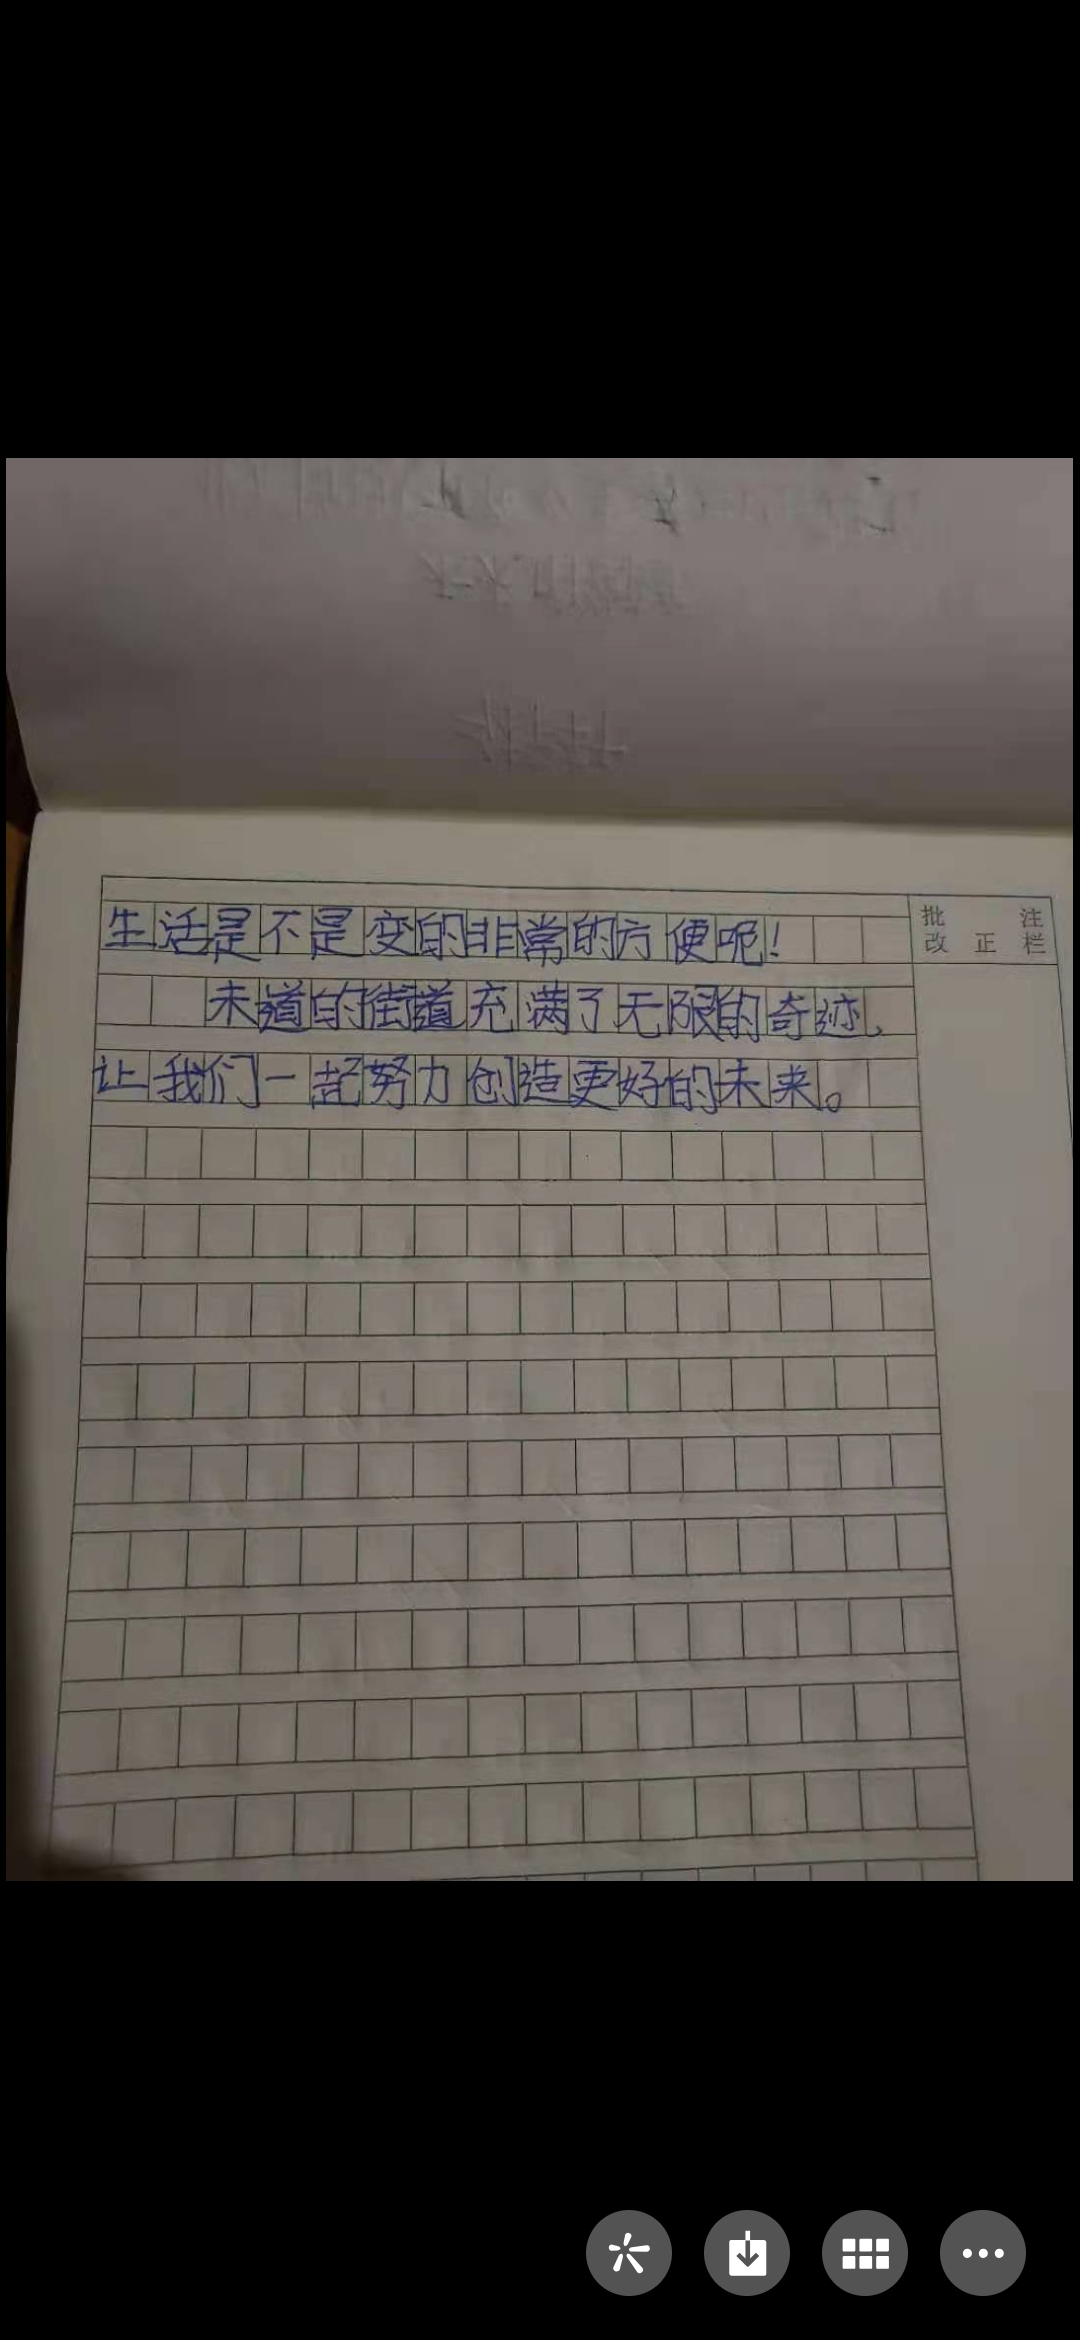 批 注
改 正 栏
生活是不是变的非常的方便呢！
未道的街道充满了无限的奇迹、
让我们一起努力创造更好的未来。